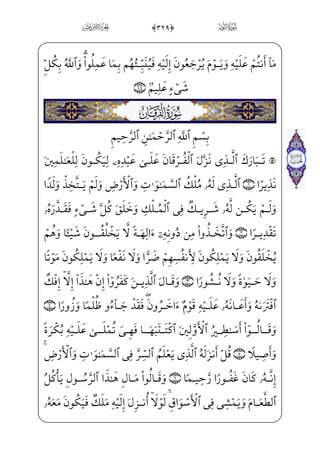 سُورَةُ النُّورِ ﴿٣٢٩﴾ الجُزْءُ الثَّامِنَ عَشَرَ
مَآ أَنتُمْ عَلَيْهِ وَيَوْمَ يُرْجَعُونَ إِلَيْهِ فَيُنَبِّئُهُم بِمَا عَمِلُوا۟ ۗ وَٱللَّهُ بِكُلِّ
شَىْءٍ عَلِيمٌۢ ٦٤
سُورَةُ الْفُرْقَانِ
بِسْمِ ٱللَّهِ ٱلرَّحْمَـٰنِ ٱلرَّحِيمِ
تَبَارَكَ ٱلَّذِى نَزَّلَ ٱلْفُرْقَانَ عَلَىٰ عَبْدِهِۦ لِيَكُونَ لِلْعَـٰلَمِينَ
نَذِيرًا ١ ٱلَّذِى لَهُۥ مُلْكُ ٱلسَّمَـٰوَٰتِ وَٱلْأَرْضِ وَلَمْ يَتَّخِذْ وَلَدًا
وَلَمْ يَكُن لَّهُۥ شَرِيكٌ فِى ٱلْمُلْكِ وَخَلَقَ كُلَّ شَىْءٍ فَقَدَّرَهُۥ
تَقْدِيرًا ٢ وَٱتَّخَذُوا۟ مِن دُونِهِۦٓ ءَالِهَةً لَّا يَخْلُقُونَ شَيْـًٔا وَهُمْ
يُخْلَقُونَ وَلَا يَمْلِكُونَ لِأَنفُسِهِمْ ضَرًّا وَلَا نَفْعًا وَلَا يَمْلِكُونَ مَوْتًا
وَلَا حَيَوٰةً وَلَا نُشُورًا ٣ وَقَالَ ٱلَّذِينَ كَفَرُوٓا۟ إِنْ هَـٰذَآ إِلَّآ إِفْكٌ
ٱفْتَرَىٰهُ وَأَعَانَهُۥ عَلَيْهِ قَوْمٌ ءَاخَرُونَ ۖ فَقَدْ جَآءُو ظُلْمًا وَزُورًا
٤ وَقَالُوٓا۟ أَسَـٰطِيرُ ٱلْأَوَّلِينَ ٱكْتَتَبَهَا فَهِىَ تُمْلَىٰ عَلَيْهِ بُكْرَةً
وَأَصِيلًا ٥ قُلْ أَنزَلَهُ ٱلَّذِى يَعْلَمُ ٱلسِّرَّ فِى ٱلسَّمَـٰوَٰتِ وَٱلْأَرْضِ ۚ
إِنَّهُۥ كَانَ غَفُورًا رَّحِيمًا ٦ وَقَالُوا۟ مَالِ هَـٰذَا ٱلرَّسُولِ يَأْكُلُ
ٱلطَّعَامَ وَيَمْشِى فِى ٱلْأَسْوَاقِ ۙ لَوْلَآ أُنزِلَ إِلَيْهِ مَلَكٌ فَيَكُونَ مَعَهُۥ